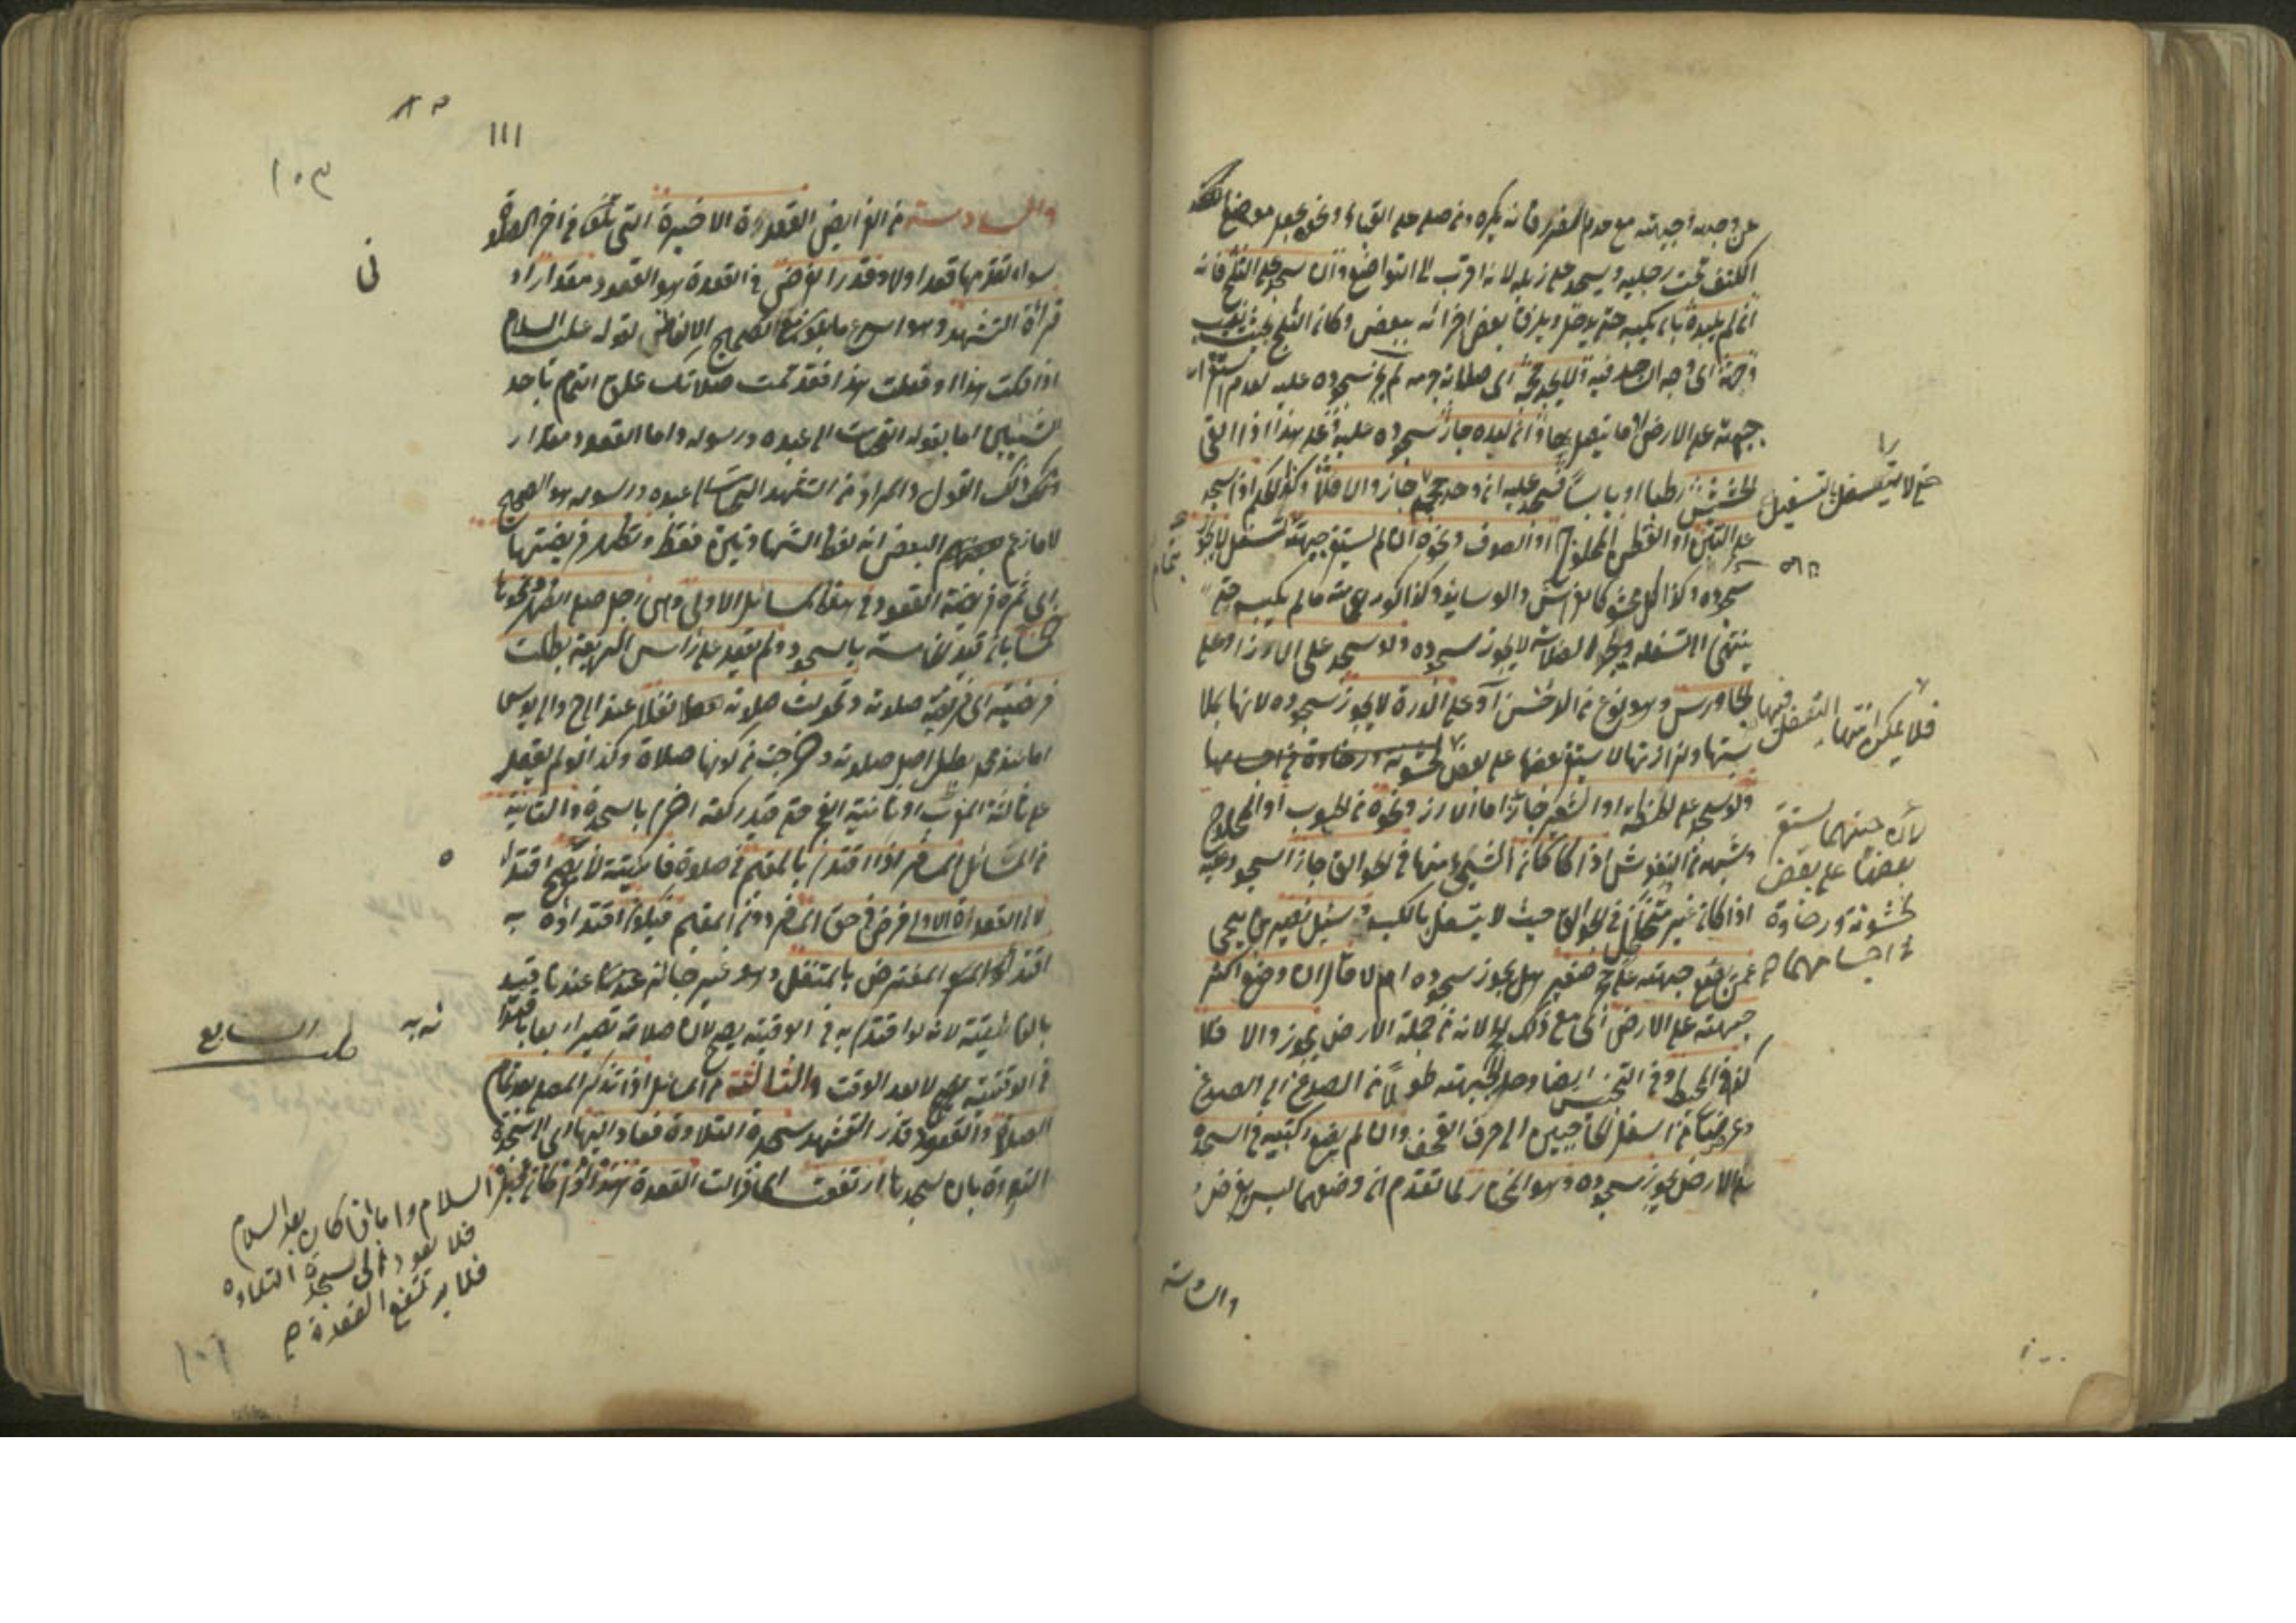 عن وجهه او جبهته مع عدم الضرر فانه يكره ومن صلى على القباء ونحوه يجعل موضع
الكتف تحت رجليه ويسجد على ذيله لانه اقرب الى التواضع وان سجد على الثلج فانه
ان لم يلبده بان يكبسه حتى يدخل ويلزق بعض اجزائه ببعض وكان الثلج بحيث يغيب
وجهه اي وجه الساجد فيه ولا يجد حجمه اي صلابة جرمه لم يجز سجوده عليه لعدم استقرار
جبهته على الارض او ما يتصل بها وان لبده جاز سجوده عليه وعلى هذا اذا القى
الحشيش رطبا او يابسا فسجد عليه ان وجد حجمه جاز والا فلا وكذا الحكم اذا سجد
على التبن او القطن المحلوج او الصوف ونحوه ان لم يستقر جبهته لا يجوز
سجوده وكذا كل محشو كالفرش والوسائد وكذا كور العمامة ما لم يكبسه حتى
ينتهي التسفل ويجد الصلابة لا يجوز سجوده ولو سجد على الارز او على
الجاورس وهو نوع من الدخن او على الذرة لا يجوز سجوده لانها لملا
ستها ولزازتها لا يستقر بعضها على بعض
ولو سجد على الحنطة او الشعير جاز اما الارز ونحوه من الحبوب او المحلوج
وشبهه من الفرش اذا كان الشيء منها في الجوالق جاز السجود عليه
اذا كان غير متخلخل في الجوالق حيث لا يتسفل بالكبس وسئل نصير بن يحيى
عمن يضع جبهته على حجر صغير هل يجوز سجوده ام لا قال ان وضع اكثر
جبهته على الارض اي مع ذلك الحجر لانه من جملة الارض يجوز والا فلا
كذا في المحيط وفي التجنيس ايضا وحد الجبهة طولا من الصدغ الى الصدغ
وعرضا من اسفل الحاجبين الى حرف القحف وان لم يضع ركبتيه في السجود
على الارض يجوز سجوده وهو المختار لما تقدم ان وضعهما ليس بفرض
حتى لا يتسفل بالتسفيل
فلا يمكن انتهاء التسفل فيها
لان حبهما يستقر
بعضها على بعض
لخشونة ورخاوة
في اجسامهما
والسادسة
١٠٠
١١١
١٠٣
والسادسة من الفرايض القعدة الاخيرة التي تكون في اخر الصلاة
سواء تقدمها قعدا ولا وقدر الفرض في القعدة هو القعود مقدار ادا
قراة التشهد وهو اسرع ما يكون مع تصحيح الالفاظ لقوله عليه السلام
اذا قلت هذا او فعلت هذا فقد تمت صلاتك علق التمام باحد
الشيئين اما بقوله التحيات الى عبده ورسوله واما القعود مقدار
ذلك القول والمراد من التشهد التحيات الى عبده ورسوله هو الصحيح
لا ما زعم البعض انه لفظ الشهادتين فقط وتظهر فرضيتها
اي ثمرة فرضية القعود في هذه المسائل الاولى وهي رجل صلى الظهر ونحوها
خمسا بان قيد الخامسة بالسجود ولم يقعد على راس الرابعة بطلت
فرضيته اي فرضية صلاته وتحولت صلاته نفلا عند ابي ح وابي يوسف
اما عند محمد بطل اصل صلاته وخرجت من كونها صلاة وكذا لو لم يقعد
على ثالثة المغرب او ثانية الفجر حتى قيد ركعة اخرى بالسجدة والثانية
من المسائل المسافر اذا اقتدى بالمقيم في صلاة فائتة لا يصح اقتداؤه
لان القعدة الاولى فرض في حق المسافر دون المقيم فيكون اقتداؤه به
اقتداء المفترض بالمتنفل وهو غير جائز عندنا قيد
بالفائتة لانه لو اقتدى به في الوقتية يصح لان صلاته تصير اربعا
في الوقتية لا بعد الوقت والثالثة من المسائل اذا تذكر المصلي بعد تمام
الصلاة والقعود قدر التشهد سجدة التلاوة فعاد اليها اي الى سجدة
التلاوة بان سجدها ارتفضت اي زالت القعدة هذا اذا كان قبل السلام واما اذا كان بعد السلام
فلا يعود الى سجدة التلاوة
فلا يرتفع القعدة
السابع
١٠١